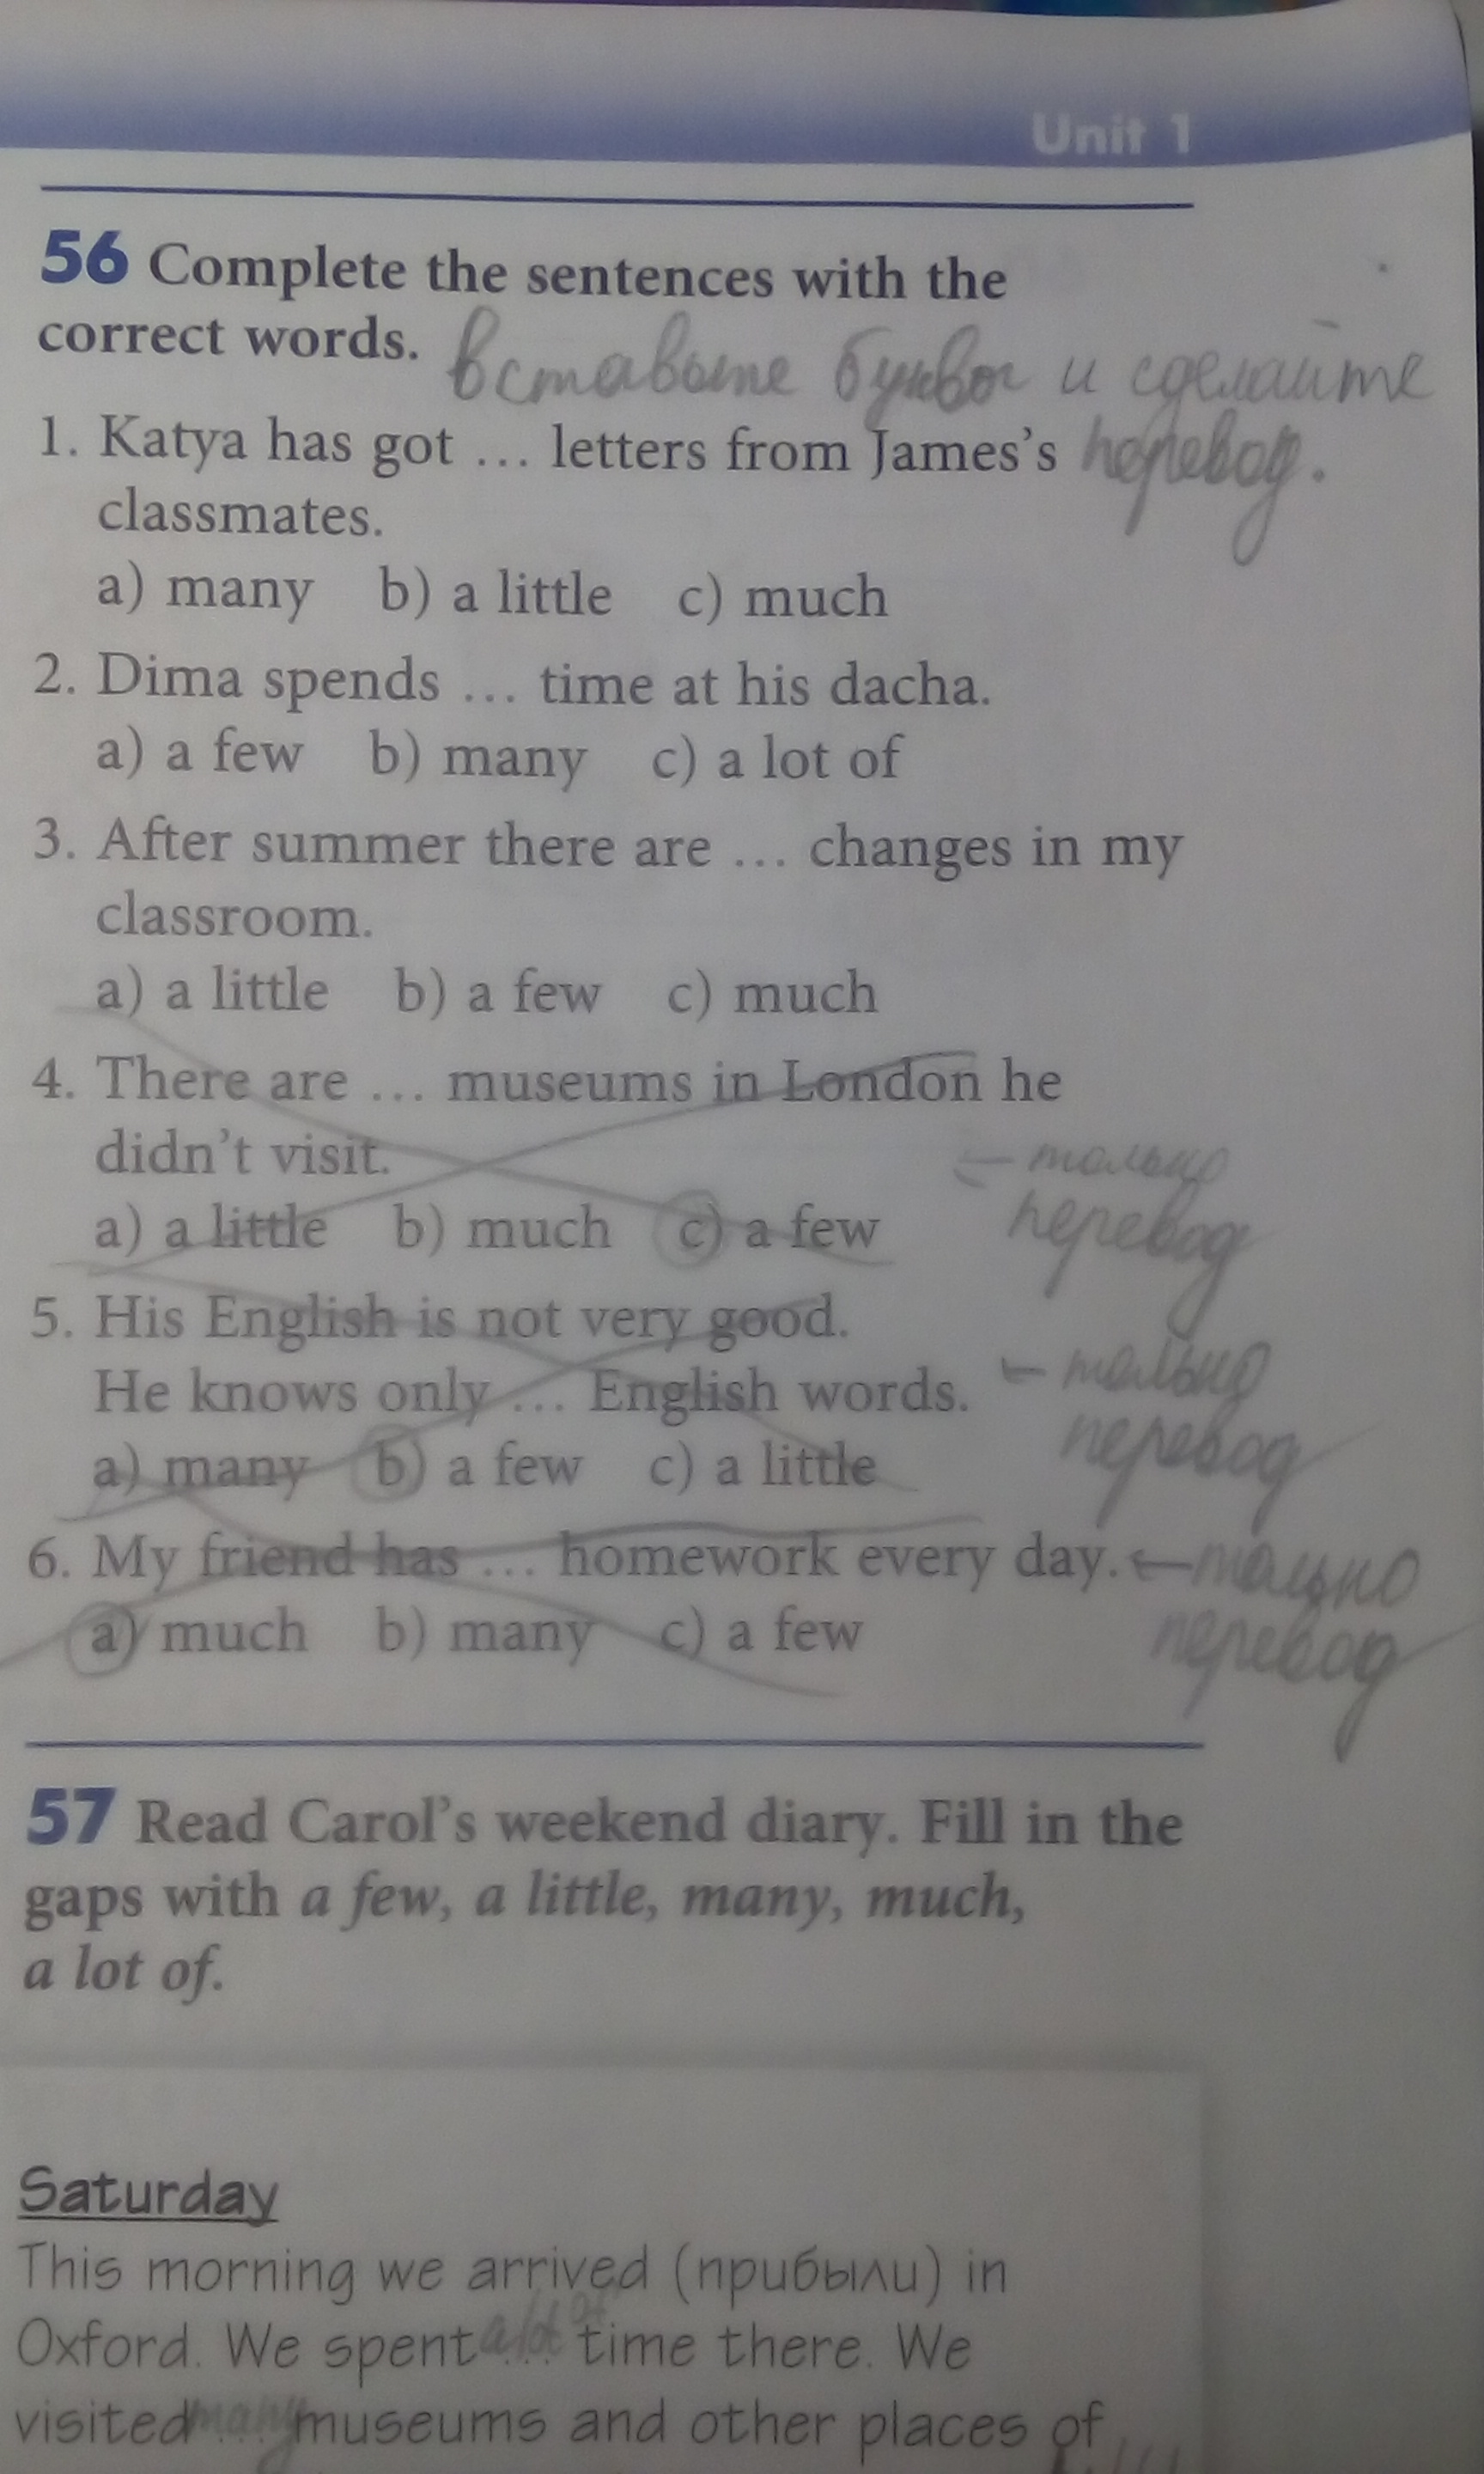 Unit 1
56 Complete the sentences with the
correct words.
вставьте буквы и сделайте
1. Katya has got ... letters from James's перевод.
classmates.
a) many b) a little c) much
2. Dima spends ... time at his dacha.
a) a few b) many c) a lot of
3. After summer there are ... changes in my
classroom.
a) a little b) a few c) much
4. There are ... museums in London he
didn't visit. ← только
a) a little b) much c) a few перевод
5. His English is not very good.
He knows only ... English words. ← только
a) many b) a few c) a little перевод
6. My friend has ... homework every day. ← только
a) much b) many c) a few перевод
57 Read Carol's weekend diary. Fill in the
gaps with a few, a little, many, much,
a lot of.
Saturday
This morning we arrived (прибыли) in
Oxford. We spent a lot of ... time there. We
visited many ... museums and other places of